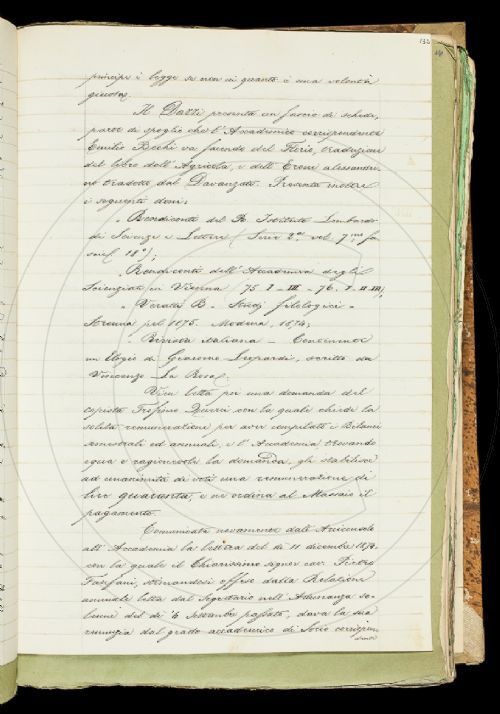 132
principe i legge se non in quanto è una volontà
giusta.
Il Dazzi presenta un fascio di schede,
parte di spoglio che l'Accademico corrispondente
Emilio Bechi va facendo del Fierio, traduzione
del libro dell'Agricola, e dell' Erone alessandri-
no tradotto dal Davanzati. Presenta inoltre
i seguenti doni:
„ Rendiconti del R. Istituto Lombardo
di Scienze e Lettere (Serie 2ª vol. 7mo fa
scicol. 18°);
„ Rendiconti dell'Accademia degli
Scienziati in Vienna 75 I-III-76, I-II-III;
„ Veratti B - Studj filologici -
Strenna pel 1875. Modena, 1874;
„ Rivista italiana - Continuenor
un Elogio di Giacomo Leopardi, scritto da
Vincenzo La Rosa.
Vien letta poi una domanda del
copista con la quale chiede la
solita remunerazione per aver compilato i Bilanci
semestrali ed annuali, e l'Accademia trovando
equa e ragionevole la domanda, gli stabilisce
ad unanimità di voti una remunerazione di
lire quaranta, e ne ordina al Massaio il
pagamento.
Comunicata novamente dall'Arciconsolo
all'Accademia la lettera del dì 11 dicembre 1874
con la quale il Chiarissimo signor cav. Pietro
Fanfani, stimandosi offeso dalla Relazione
annuale letta dal Segretario nell'Adunanza so-
lenne del dì 6 Settembre passato, dava la sua
rinunzia dal grado accademico di Socio corrispon
dente